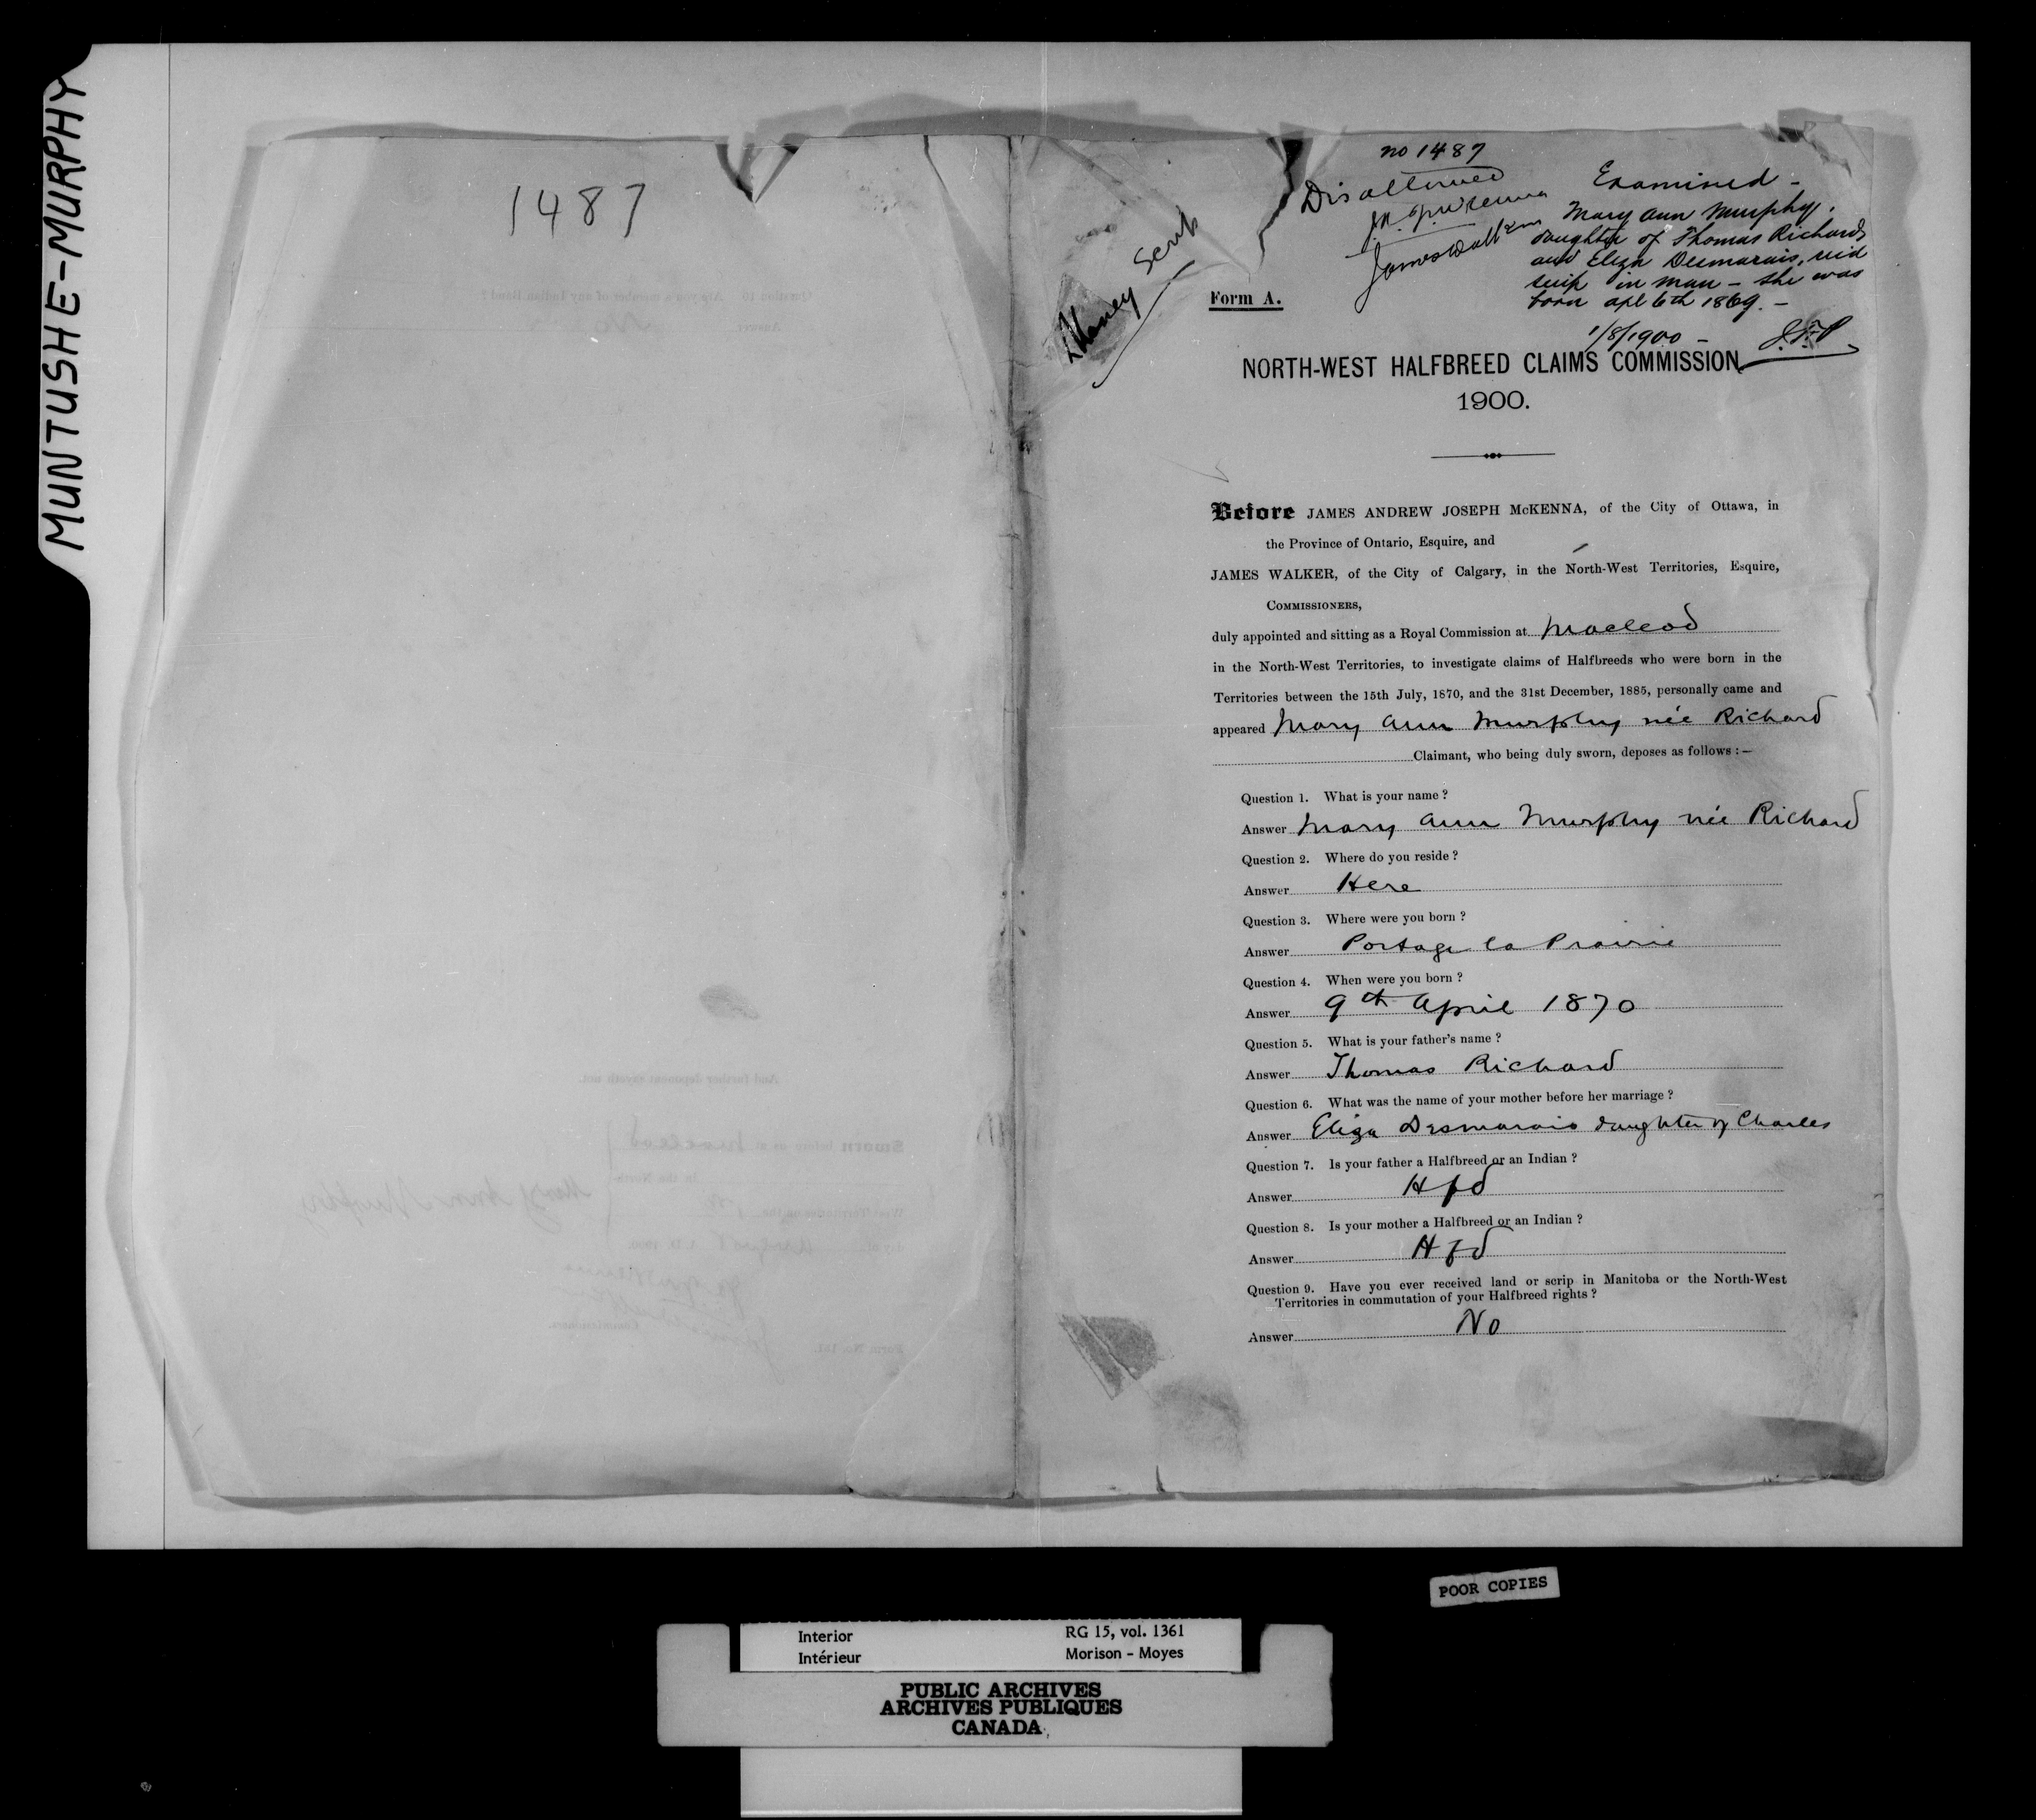 MUNTUSHE-MURPHY
1487
no 1487
Disallowed
J.A. J. McKenna
James Walker
Money Scrip
Examined -
Mary Ann Murphy,
daughter of Thomas Richards
and Eliza Desmarais, recd
scrip in Man - she was
born Apl 6th 1869. -
1/8/1900 -
J.F.P
Form A.
NORTH-WEST HALFBREED CLAIMS COMMISSION
1900.
Before JAMES ANDREW JOSEPH McKENNA, of the City of Ottawa, in
the Province of Ontario, Esquire, and
JAMES WALKER, of the City of Calgary, in the North-West Territories, Esquire,
COMMISSIONERS,
duly appointed and sitting as a Royal Commission at Macleod
in the North-West Territories, to investigate claims of Halfbreeds who were born in the
Territories between the 15th July, 1870, and the 31st December, 1885, personally came and
appeared Mary Ann Murphy née Richard
Claimant, who being duly sworn, deposes as follows :—
Question 1. What is your name ?
Answer Mary Ann Murphy née Richard
Question 2. Where do you reside ?
Answer Here
Question 3. Where were you born ?
Answer Portage la Prairie
Question 4. When were you born ?
Answer 9th April 1870
Question 5. What is your father's name ?
Answer Thomas Richard
Question 6. What was the name of your mother before her marriage ?
Answer Eliza Desmarais daughter of Charles
Question 7. Is your father a Halfbreed or an Indian ?
Answer Hfd
Question 8. Is your mother a Halfbreed or an Indian ?
Answer Hfd
Question 9. Have you ever received land or scrip in Manitoba or the North-West
Territories in commutation of your Halfbreed rights ?
Answer No
POOR COPIES
Interior
Intérieur
RG 15, vol. 1361
Morison - Moyes
PUBLIC ARCHIVES
ARCHIVES PUBLIQUES
CANADA